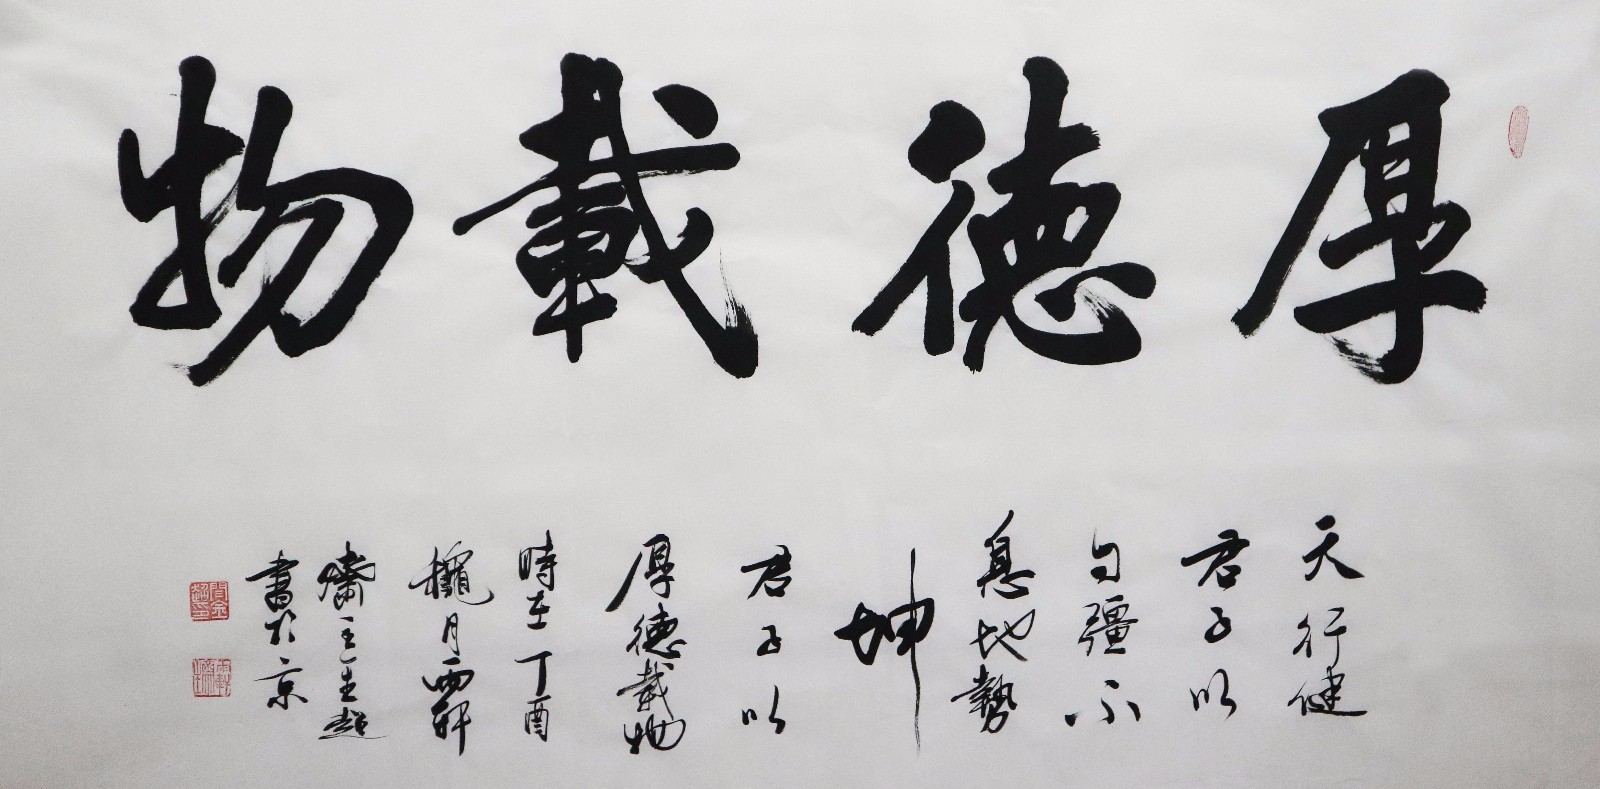 厚德載物
天行健
君子以
自彊不
息地勢
坤
君子以
厚德載物
時在丁酉
穐月雨軒
齋主生超
書於京